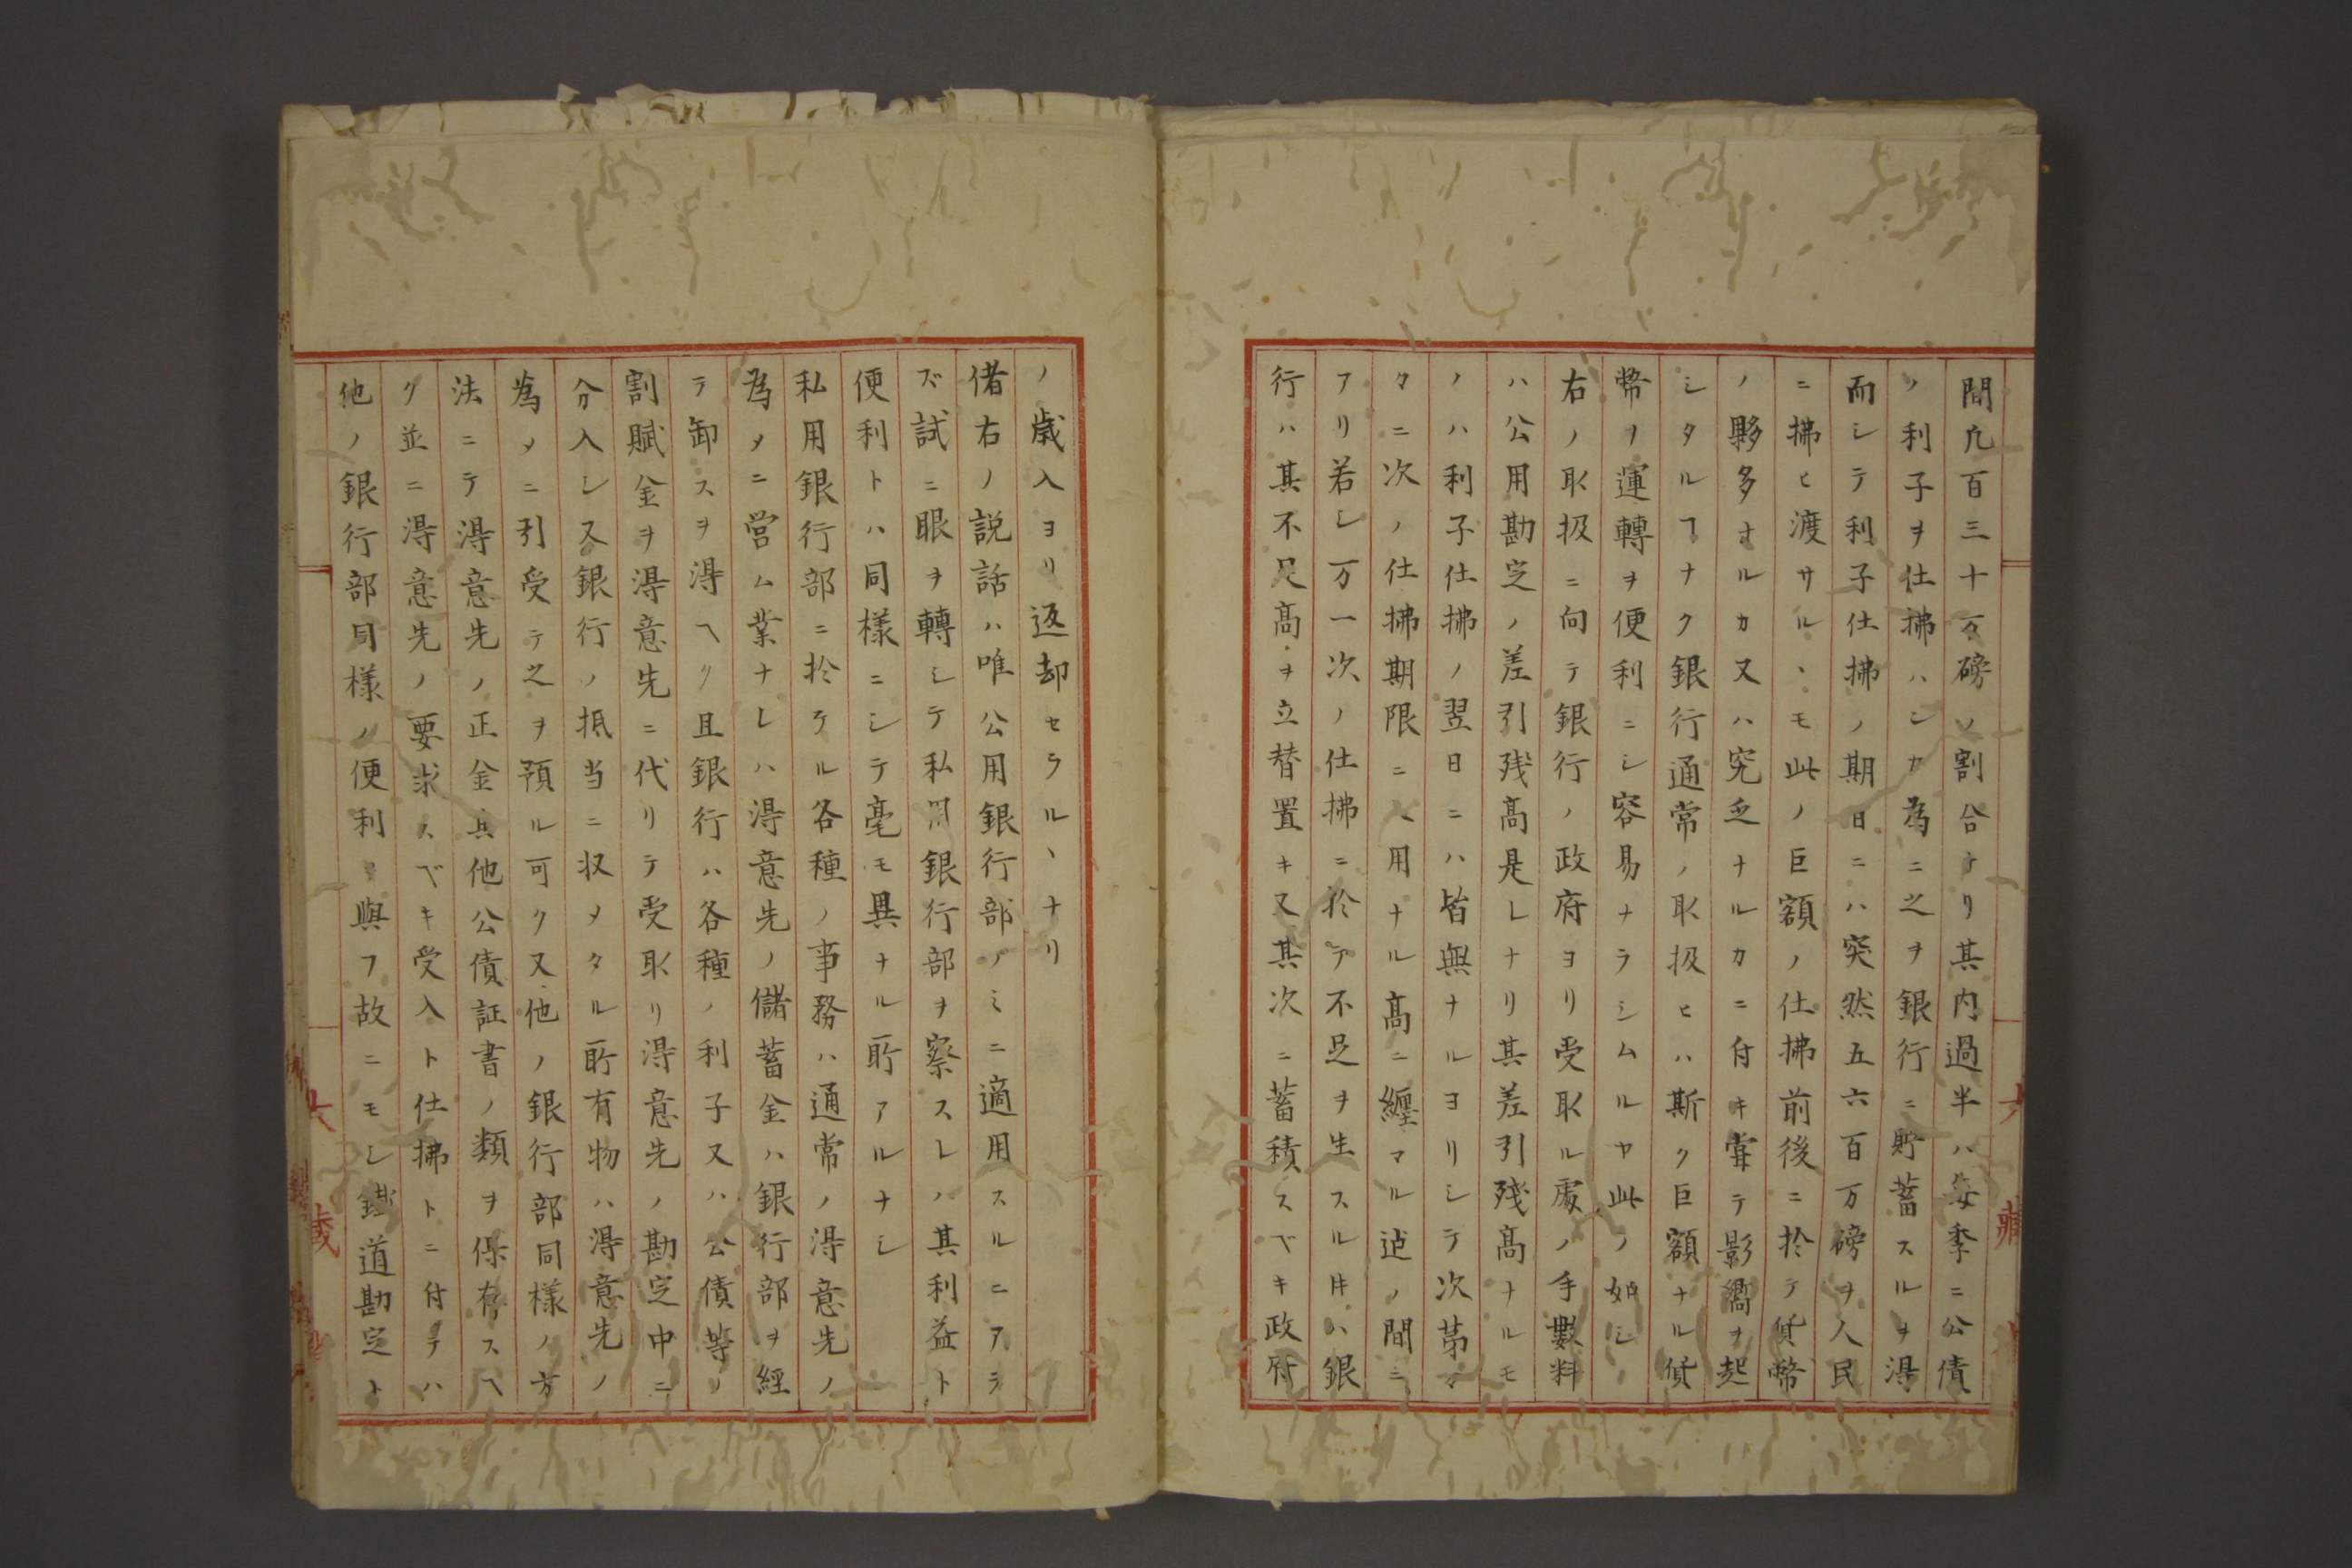 間凢百三十万磅ノ割合ナリ其内過半ハ毎季ニ公債
ノ利子ヲ仕拂ハンカ為ニ之ヲ銀行ニ貯蓄スルヲ得
而シテ利子仕拂ノ期日ニハ突然五六百万磅ヲ人民
ニ拂ヒ渡サルヽモ此ノ巨額ノ仕拂前後ニ於テ貨幣
ノ夥多ナルカ又ハ究乏ナルカニ付キ甞テ影響ヲ起
シタルヿナク銀行通常ノ取扱ヒハ斯ク巨額ナル貨
幣ノ運轉ヲ便利ニシ容易ナラシムルヤ此ノ如シ
右ノ取扱ニ向テ銀行ノ政府ヨリ受取ル処ノ手數料
ハ公用勘定ノ差引残髙是レナリ其差引殘髙ナルモ
ノハ利子仕拂ノ翌日ニハ皆無ナルヨリシテ次苐々
々ニ次ノ仕拂期限ニ入用ナル髙ニ纏マル迠ノ間ニ
アリ若シ万一次ノ仕拂ニ於テ不足ヲ生スル𪜈ハ銀
行ハ其不足髙ヲ立替置キ又其次ニ蓄積スベキ政府
ノ歳入ヨリ返却セラルヽナリ
偖右ノ説話ハ唯公用銀行部ノミニ適用スルニアラ
ズ試ニ眼ヲ轉シテ私用銀行部ヲ察スレハ其利益ト
便利トハ同様ニシテ毫モ異ナル所アルナシ
私用銀行部ニ於テル各種ノ事務ハ通常ノ得意先ノ
為メニ営ム業ナレハ得意先ノ儲蓄金ハ銀行部ヲ經
テ卸スヲ得ヘク且銀行ハ各種ノ利子又ハ公債等ノ
割賦金ヲ得意先ニ代リテ受取リ得意先ノ勘定中ニ
分入シ又銀行ノ抵当ニ収メタル所有物ハ得意先ノ
為メニ引受テ之ヲ預ル可ク又他ノ銀行部同様ノ方
法ニテ得意先ノ正金其他公債証書ノ類ヲ保存スヘ
ク並ニ得意先ノ要求スベキ受入ト仕拂トニ付テハ
他ノ銀行部同様ノ便利ヲ與フ故ニモシ鐵道勘定ト